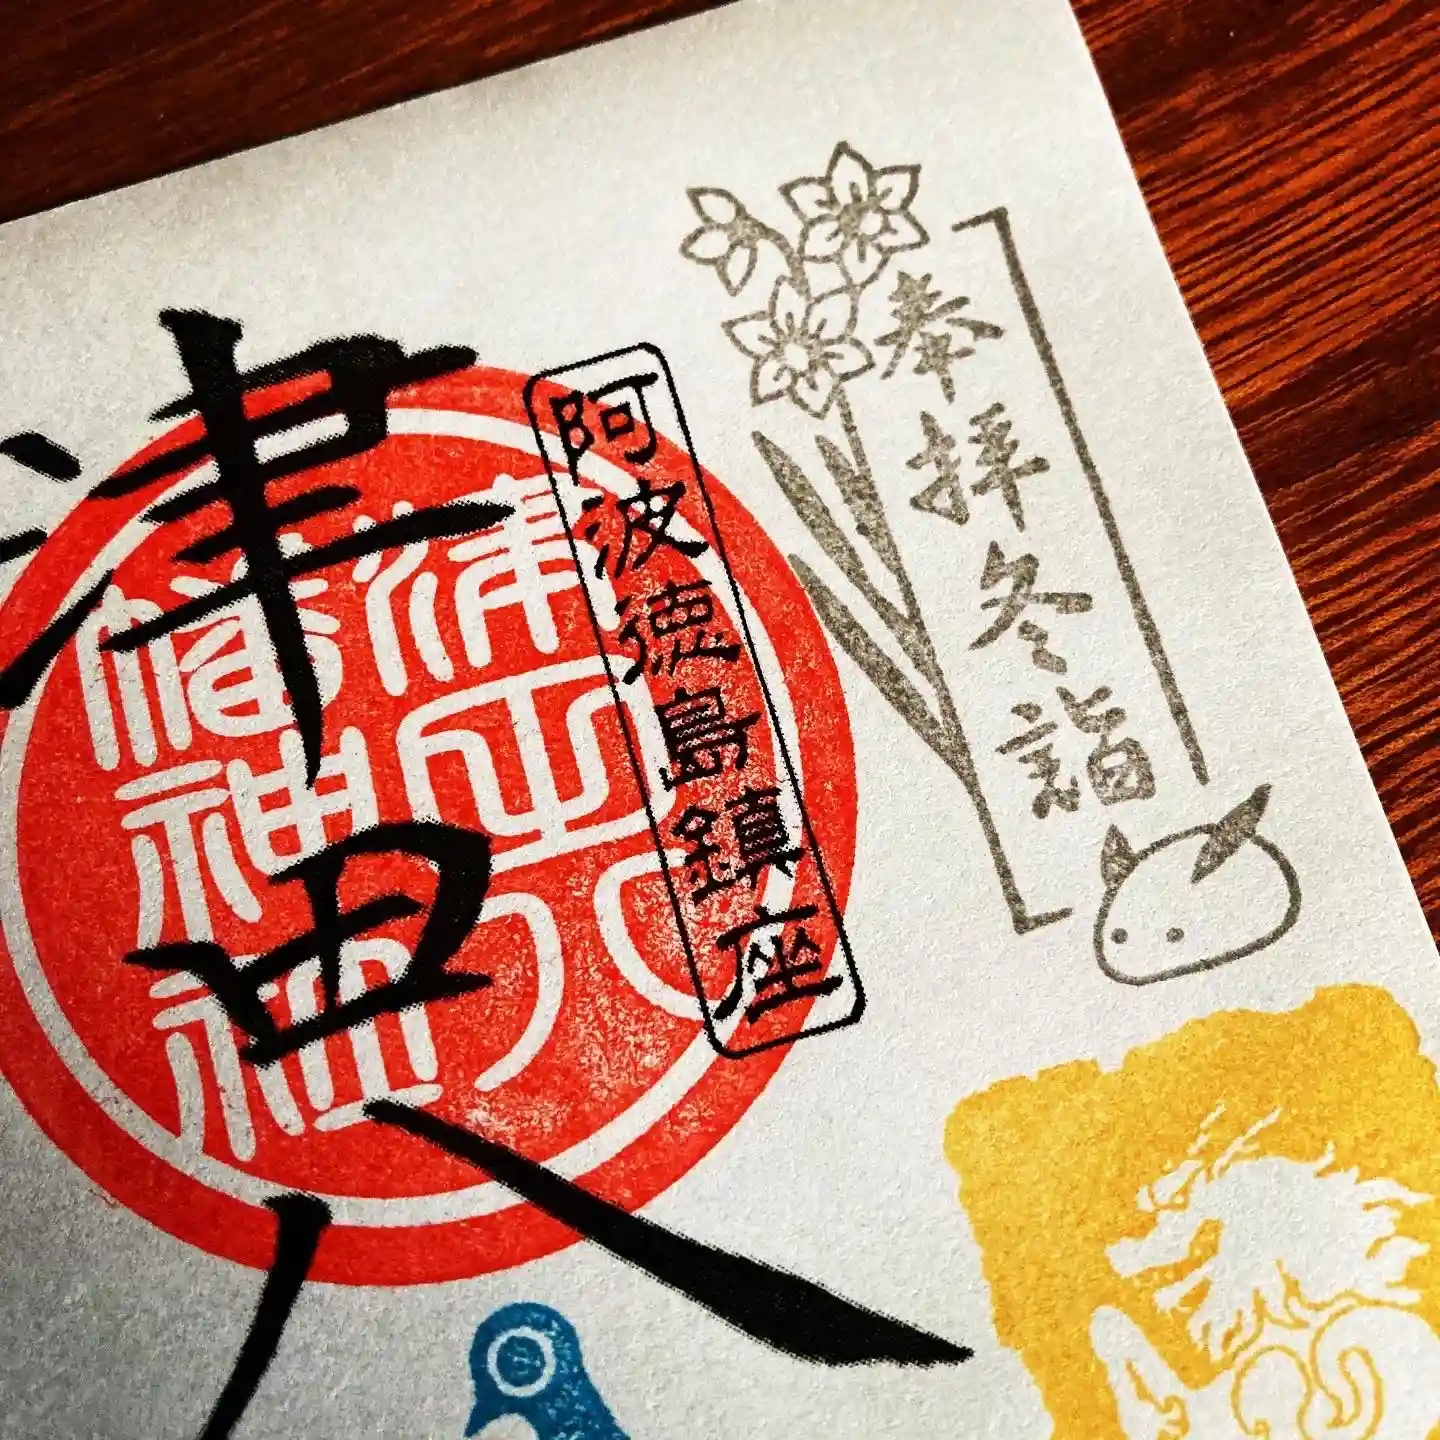 奉拝冬詣
阿波徳島鎮座
津田八
津田八
幡神社